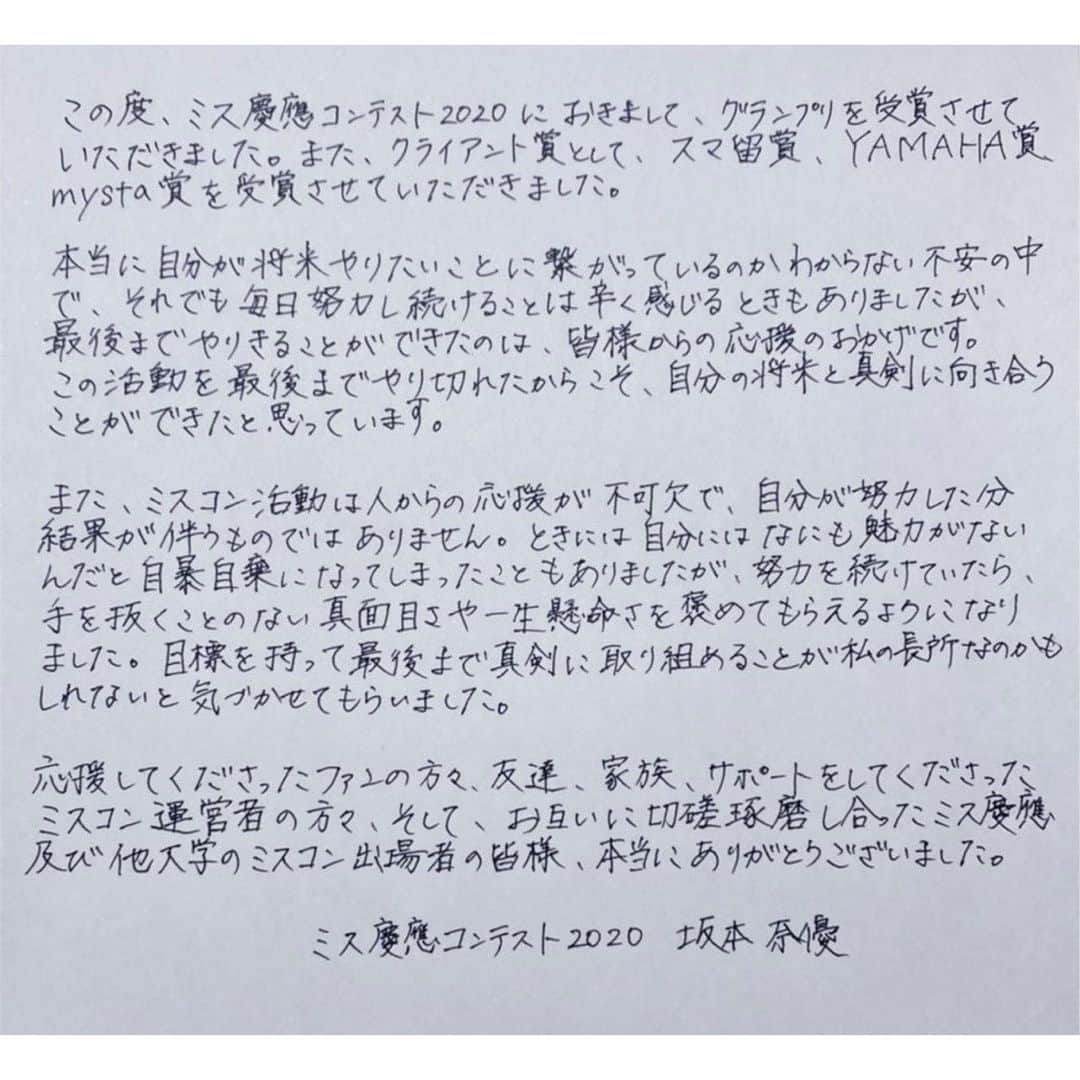 この度、ミス慶應コンテスト2020におきまして、グランプリを受賞させて
いただきました。また、クライアント賞として、スマ留賞、YAMAHA賞
mysta賞を受賞させていただきました。
本当に自分が将来やりたいことに繋がっているのかわからない不安の中
で、それでも毎日努力し続けることは辛く感じるときもありましたが、
最後までやりきることができたのは、皆様からの応援のおかげです。
この活動を最後までやり切れたからこそ、自分の将来と真剣に向き合う
ことができたと思っています。
また、ミスコン活動は人からの応援が不可欠で、自分が努力した分
結果が伴うものではありません。ときには自分にはなにも魅力がない
んだと自暴自棄になってしまったこともありましたが、努力を続けていたら、
手を抜くことのない真面目さや一生懸命さを褒めてもらえるようになり
ました。目標を持って最後まで真剣に取り組めることが私の長所なのかも
しれないと気づかせてもらいました。
応援してくださったファンの方々、友達、家族、サポートをしてくださった
ミスコン運営者の方々、そして、お互いに切磋琢磨し合ったミス慶應
及び他大学のミスコン出場者の皆様、本当にありがとうございました。
ミス慶應コンテスト2020 坂本 奈優